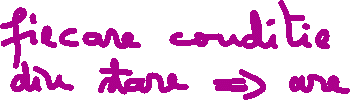 fiecare conditie
din stare => are